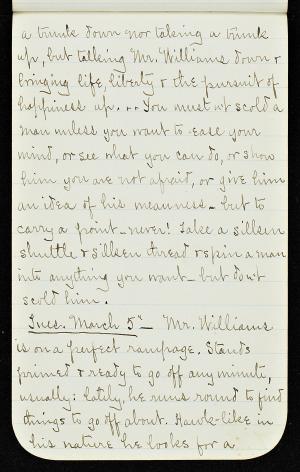 a trunk down nor taking a trunk
up, but talking Mr. Williams down &
bringing life, liberty & the pursuit of
happiness up. .. You must n't scold a
man unless you want to ease your
mind, or see what you can do, or show
him you are not afraid, or give him
an idea of his meanness - but to
carry a point - never! Take a silken
shuttle & silken thread & spin a man
into anything you want - but don't
scold him.
Tues. March 5" - Mr. Williams
is on a perfect rampage. Stands
primed & ready to go off any minute,
usually: lately, he runs round to find
things to go off about. Hawk-like in
his nature he looks for a